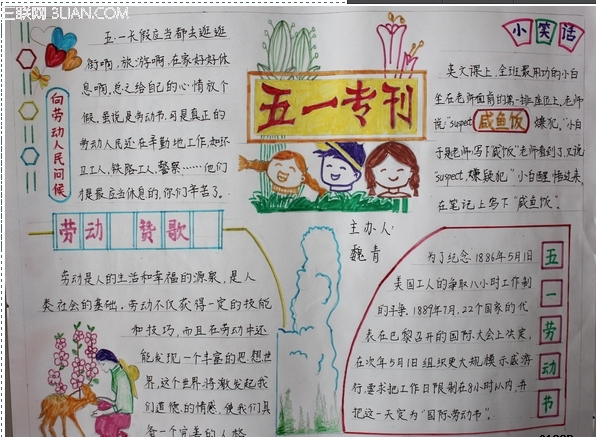 三联网 3LIAN.COM
向劳动人民问候
五·一长假应当都去逛逛
街啊,旅游啊,在家好好休
息啊,总之给自己的心情放个
假,虽说是劳动节,可是真正的
劳动人民还在辛勤地工作,如环
卫工人,铁路工人,警察……他们
才是最应当休息的,你们辛苦了。
五一专刊
小笑话
英文课上,全班最用功的小白
坐在老师面前的第一排座位上,老师
说:"supect 咸鱼饭 嫌犯,"小白
于是老师写下咸饭"老师看到了,又说
"suspect,嫌疑犯"小白醒悟过来,
在笔记上写下"咸鱼饭"。
劳动赞歌
劳动是人的生活和幸福的源泉,是人
类社会的基础。劳动不仅获得一定的技能
和技巧,而且在劳动中还
能发现一个丰富的思想世
界,这个世界将激发起我
们道德的情感,使我们具
备一个完善的人格
主办人:
魏青
五一劳动节
为了纪念1886年5月1日
美国工人的争取八小时工作制
的斗争,1889年7月,22个国家的代
表在巴黎召开的国际大会上决定,
在次年5月1日组织更大规模示威游
行,要求把工作日限制在8小时以内,并
把这一天定为"国际劳动节"。